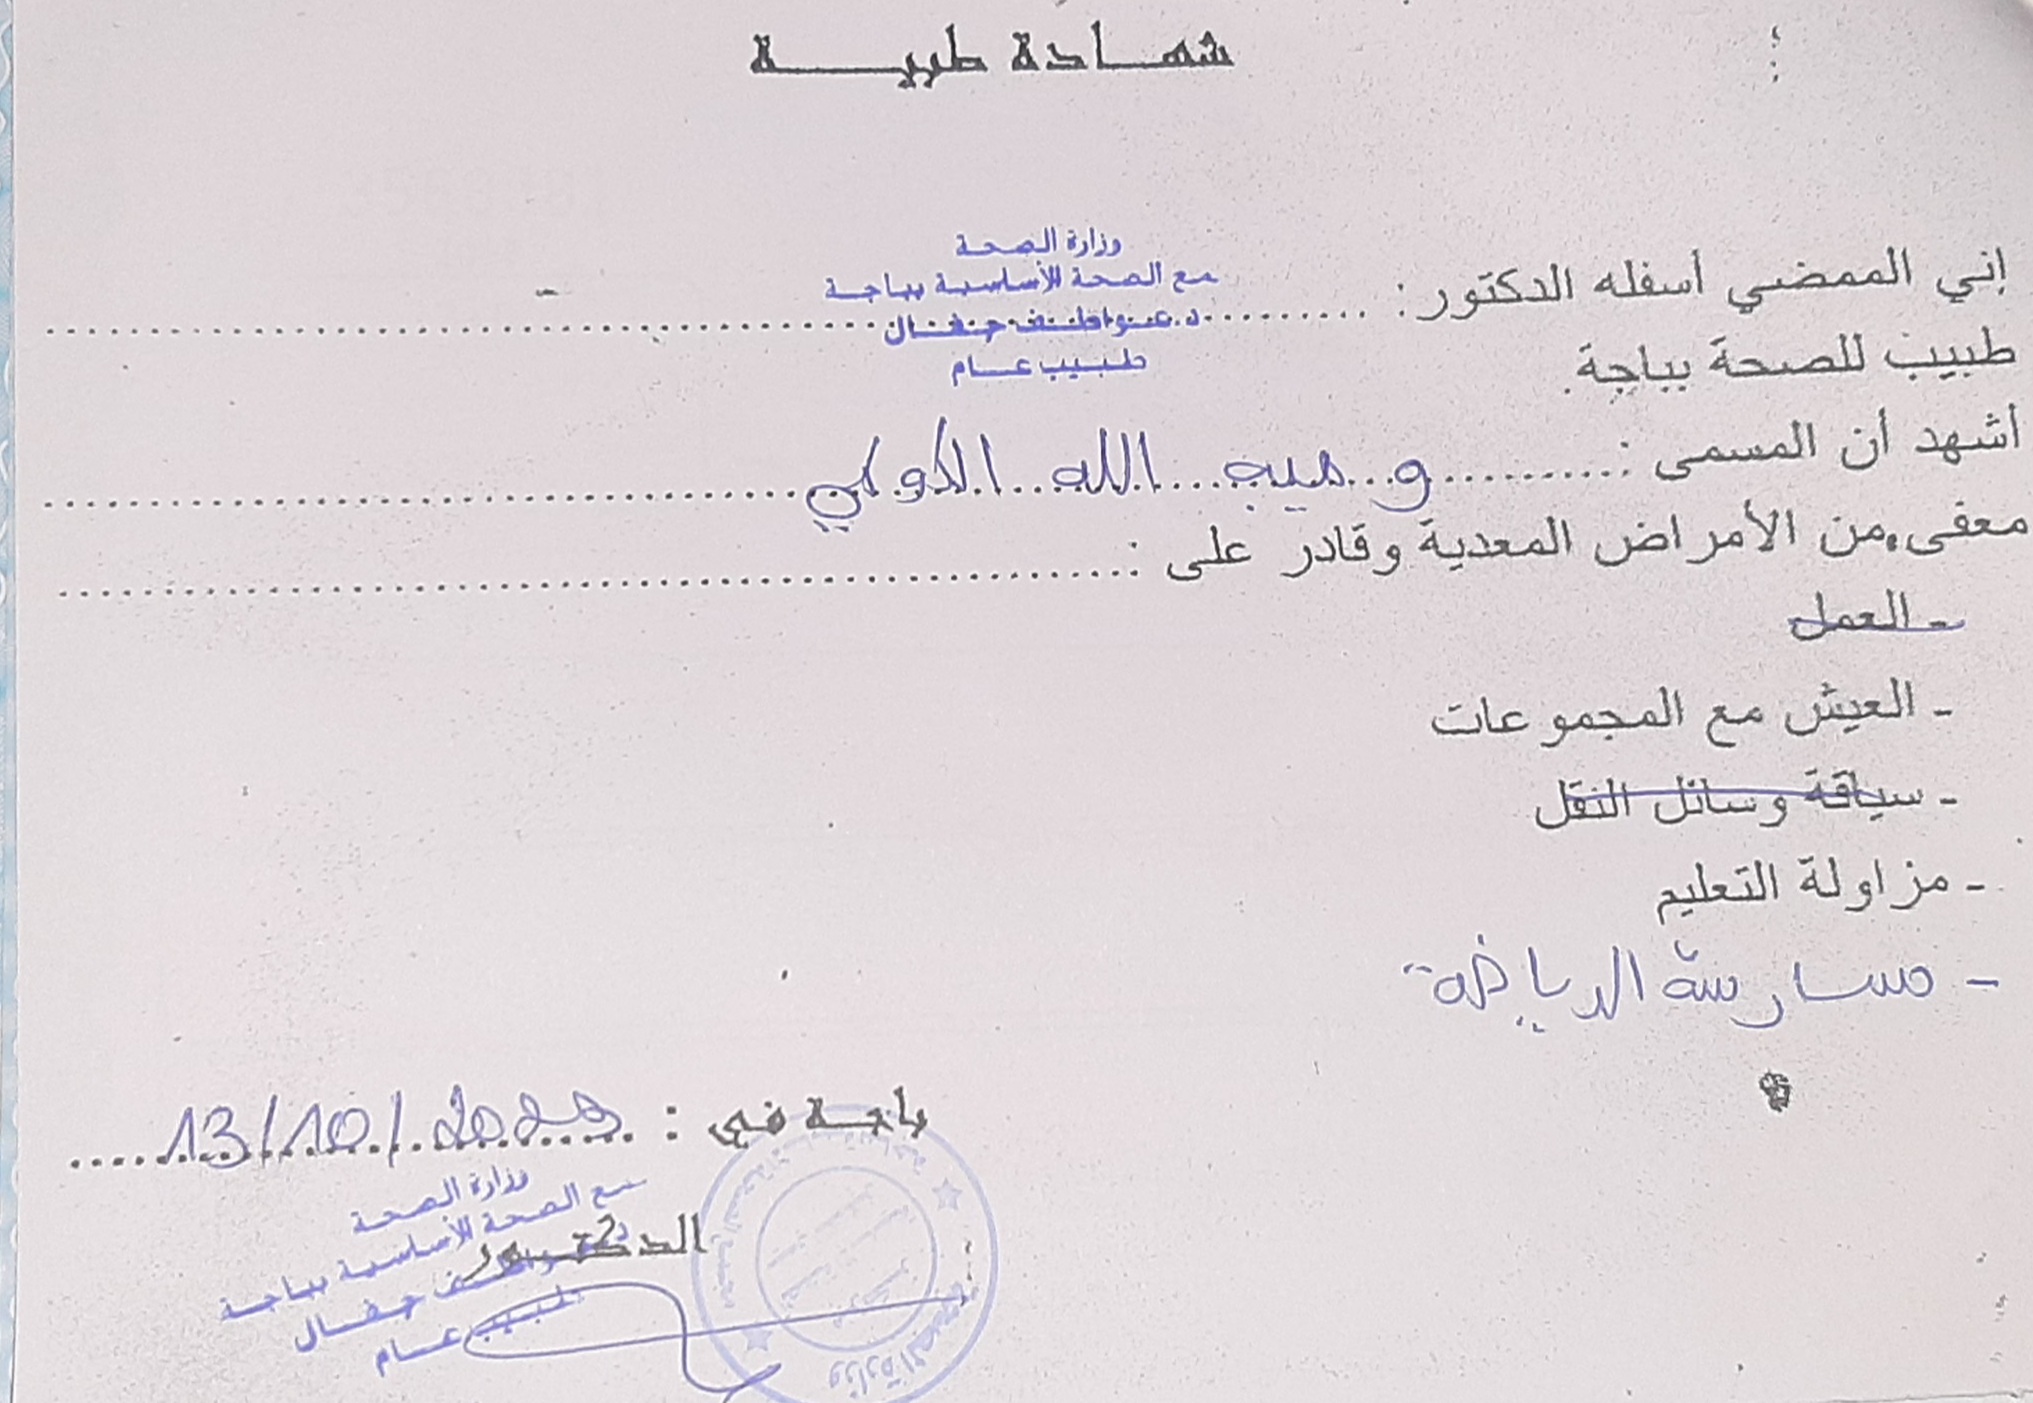 شهادة طبية
وزارة الصحة
مع الصحة الأساسية بباجة
إني الممضي أسفله الدكتور: د. عواطف جفال
طبيب عام
طبيب للصحة بباجة.
أشهد أن المسمى : وهيب الله
معفى من الأمراض المعدية وقادر على :
- العمل
- العيش مع المجموعات
- سياقة وسائل النقل
- مزاولة التعليم
- ممارسة الرياضة
باجة في : 13/10/2023
وزارة الصحة
مع الصحة الأساسية بباجة
الدكتور
عواطف جفال
طبيب عام
وزارة الصحة